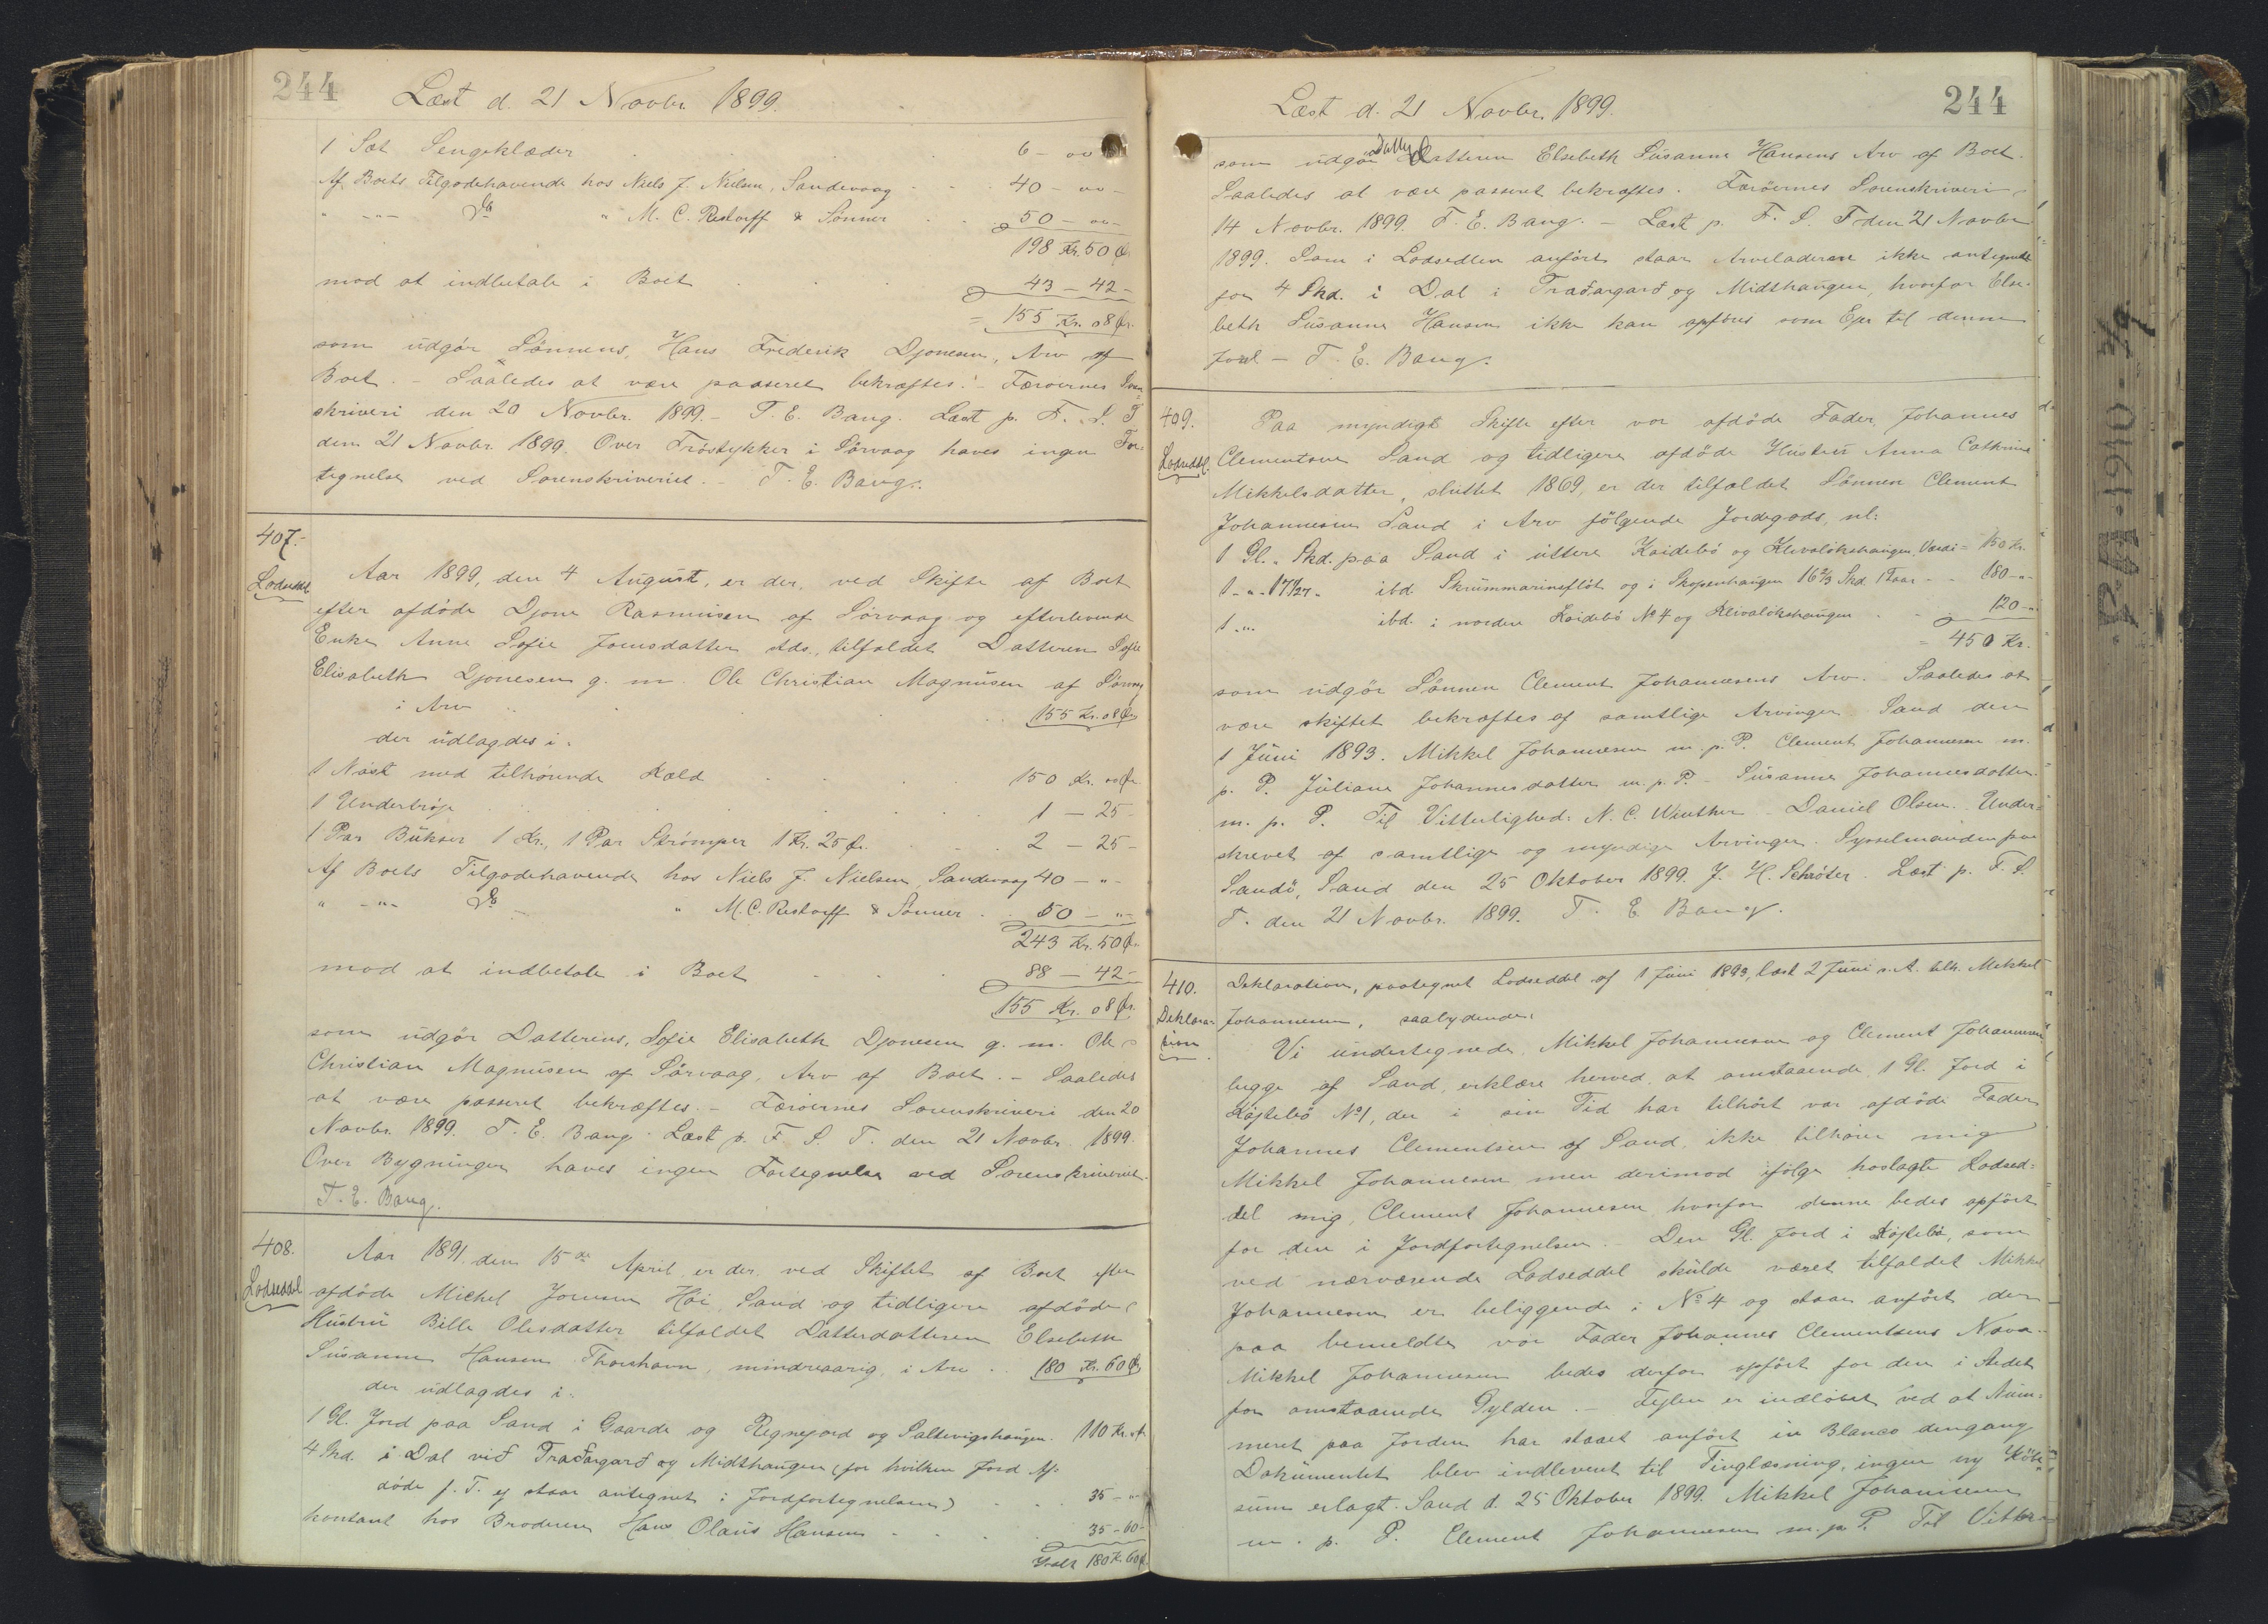 244
Læst d. 21 Novbr 1899.
1 Sæt Sengeklæder 6 - oo
Af Boets Tilgodehavende hos Niels J. Nielsen, Sandevaag 40 - oo -
" -"- Do " M. C. Restorff & Sønner 50 - oo -
198 Kr. 50 Ør
mod at indbetale i Boet 43 - 42 -
= 155 Kr. 08 Ør.
som udgör Sönnens, Hans Frederik Djonesen, Arv af
Boet. - Saaledes at være passeret bekræftes. - Færöernes Soren-
skriveri den 20 Novbr. 1899. - T. E. Bang. Læst p. F. S. T
den 21 Novbr. 1899. Over Tröstykker i Sörvaag haves ingen For-
tegnelse ved Sorenskriveriet. - T. E. Bang.
407.
Lodseddel
Aar 1899, den 4 August, er der, ved Skifte af Boet
efter afdöde Djone Rasmussen af Sörvaag og efterlevende
Enke Anne Sofie Joensdatter stds., tilfaldet Datteren Sofie
Elisabeth Djonesen g. m. Ole Christian Magnusen af Sörvaag
i Arv 155 Kr. 08 Ør
der udlagdes i:
1 Nöst med tilhörende Kæld 150 Kr. oo Ør.
1 Undertröje 1 - 25 -
1 Par Bukser 1 Kr., 1 Par Strömper 1 Kr. 25 Ør. 2 - 25 -
Af Boets Tilgodehavende hos Niels J. Nielsen, Sandevaag 40 - " -
" -"- Do " M. C. Restorff & Sönner 50 - " -
243 Kr. 50 Ør
mod at indbetale i Boet 88 - 42 -
155 Kr. 08 Ør.
som udgör Datterens, Sofie Elisabeth Djonesen g. m. Ole
Christian Magnusen af Sörvaag, Arv af Boet. - Saaledes
at være passeret bekræftes. - Færöernes Sorenskriveri den 20
Novbr. 1899. T. E. Bang. Læst p. F. S. T. den 21 Novbr. 1899.
Over Bygningen haves ingen Fortegnelse ved Sorenskriveriet.
T. E. Bang.
408.
Lodseddel
Aar 1891 den 15de April, er der, ved Skiftet af Boet efter
afdöde Michel Joensen Höi, Sand og tidligere afdöde
Hustru Bille Olesdatter tilfaldet Datterdatteren Elsebeth
Susanne Hansen Thorshavn, mindreaarig, i Arv 180 Kr. 60 Ør
der udlagdes i:
1 Gl. Jord paa Sand i Gaarde og Regnejord og Saltevigshaugen. 110 Kr.
4 Skd. i Dal við Traðargarð og Midthaugen (for hvilken Jord Af-
döde f. T. ej staar antegnet i Jordfortegnelsen) 35 -
kontant hos Broderen Hans Olaus Hansen 35 - 60 -
Ialt 180 K. 60 Ør
Læst d. 21 Novbr. 1899.
244
som udgör Datterdatteren Elsebeth Susanne Hansens Arv af Boet.
Saaledes at være passeret bekræftes. Færöernes Sorenskriveri
14 Novbr. 1899. T. E. Bang. - Læst p. F. S. T den 21 Novbr
1899. Som i Lodsedlen anfört staar Arveladeren ikke antegnet
for 4 Skd. i Dal i Traðargarð og Midthaugen, hvorfor Else-
beth Susanne Hansen ikke kan opföres som Ejer til denne
Jord - T. E. Bang.
409.
Lodseddel.
Paa myndigt Skifte efter vor afdöde Fader, Johannes
Clementsen Sand og tidligere afdöde Hustru Anna Cathrine
Mikkelsdatter, sluttet 1869, er der tilfaldet Sönnen Clement
Johannesen Sand i Arv fölgende Jordegods, nl:
1 Gl. " Skd. paa Sand i uttere Koidebö og Klivalökshaugen, Værdi = 150 Kr.
1 - " - 17 1/27 " ibd. Skrummarinsflöt og i Skopenhaugen 16 2/3 Skd. 1 Faar - - 180 - " -
1 - " ibd. i norden Koidebö No 4 og Klivalökshaugen 120 - "
= 450 Kr.
som udgör Sönnen Clement Johannesens Arv. Saaledes at
være skiftet bekræftes af samtlige Arvinger. Sand den
1 Juni 1893. Mikkel Johannesen m. p. P. Clement Johannesen m.
p. P. Juliane Johannesdatter m. p. P. - Susanne Johannesdatter
m. p. P. Til Vitterlighed: N. C. Winther - Daniel Olsen. Under-
skrevet af samtlige og myndige Arvinger. Sysselmanden paa
Sandö, Sand den 25 Oktober 1899. J. H. Schröter. Læst p. F. S.
T. den 21 Novbr. 1899. T. E. Bang.
410.
Deklara-
tion
Deklaration, paategnet Lodseddel af 1 Juni 1893, læst 2 Juni s. A. tilh. Mikkel
Johannesen, saalydende:
Vi undertegnede, Mikkel Johannesen og Clement Johannesen
begge af Sand, erklære herved, at omstaaende 1 Gl. Jord i
Köjtebö No 1, der i sin Tid har tilhört vor afdöde Fader
Johannes Clementsen af Sand, ikke tilhörer mig
Mikkel Johannesen men derimod ifölge hoslagte Lodsed-
del mig, Clement Johannesen hvorfor denne bedes opfört
for den i Jordfortegnelsen. Den Gl. Jord i Köjtebö, som
ved nærværende Lodseddel skulde været tilfaldet Mikkel
Johannesen er beliggende i No 4 og staar anfört der
paa bemeldte vor Fader Johannes Clementsens Navn.
Mikkel Johannesen bedes derfor opfört for den i Stedet
for omstaaende Gylden. - Fejlen er indlöbet ved at Num-
meret paa Jorden har staaet anfört in Blanco dengang
Dokumentet blev indleveret til Tinglæsning, ingen ny Köbe-
sum erlagt. Sand d. 25 Oktober 1899. Mikkel Johannesen
m. p. P. Clement Johannesen m. p. P. Til Vitter-